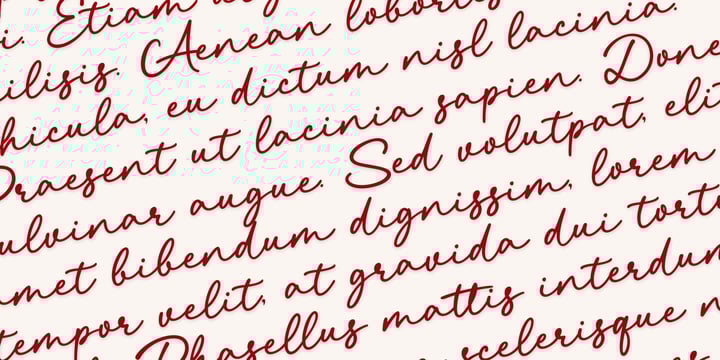 i. Etiam
ilisis. Aenean lobortis
hicula, eu dictum nisl lacinia.
Praesent ut lacinia sapien. Done
ulvinar augue. Sed volutpat, elit
amet bibendum dignissim, lorem
tempor velit, at gravida dui tortu
Phasellus mattis interdum
scelerisque